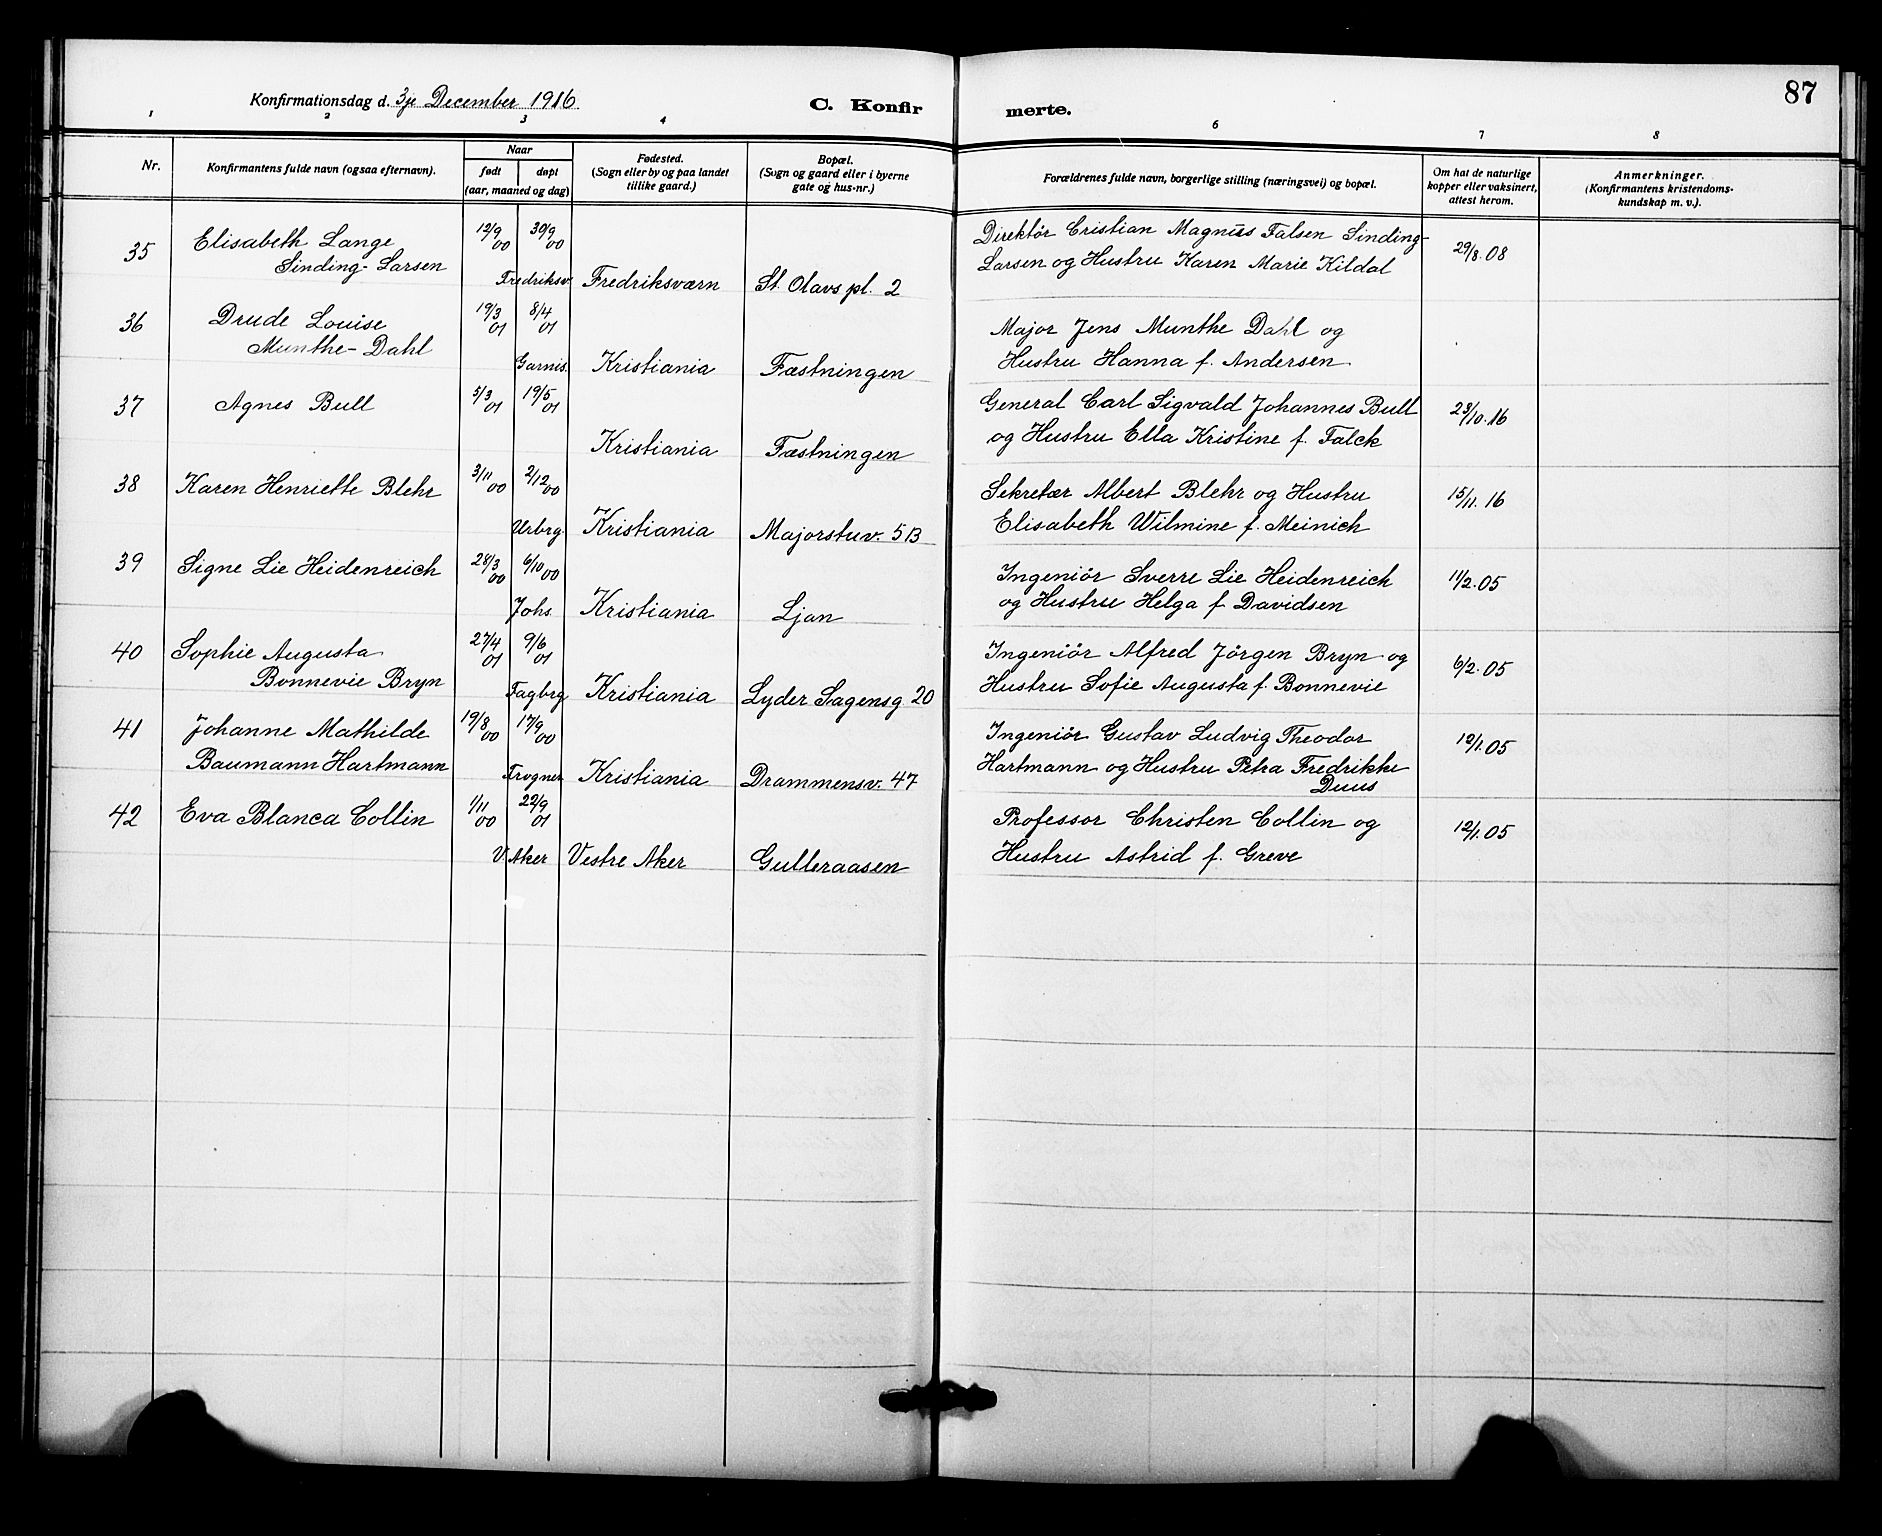 87
Konfirmationsdag d. 3je December 1916
C. Konfirmerte.
1 2 3 4 6 7 8
Nr.
Konfirmantens fulde navn (ogsaa efternavn).
Naar
født døpt
(aar, maaned og dag)
Fødested.
(Sogn eller by og paa landet
tillike gaard.)
Bopæl.
(Sogn og gaard eller i byerne
gate og hus-nr.)
Forældrenes fulde navn, borgerlige stilling (næringsvei) og bopæl.
Om hat de naturlige
kopper eller vaksinert,
attest herom.
Anmerkninger.
(Konfirmantens kristendoms-
kundskap m. v.).
35 Elisabeth Lange 12/9 00 30/9 00 Direktör Cristian Magnus Falsen Sinding-
Sinding-Larsen Fredriksv. Fredriksværn St. Olavs pl. 2 Larsen og Hustru Karen Marie Kildal 29/8.08
36 Drude Louise 19/3 01 8/4 01 Major Jens Munthe Dahl og
Munthe-Dahl Garnis. Kristiania Fæstningen Hustru Hanna f. Andersen
37 Agnes Bull 5/3 01 19/5 01 General Carl Sigvald Johannes Bull 23/10.16
Kristiania Fæstningen og Hustru Ella Kristine f. Falck
38 Karen Henriette Blehr 3/11 00 2/12 00 Sekretær Albert Blehr og Hustru 15/11.16
Urbrg. Kristiania Majorstuv. 5B Elisabeth Wilmine f. Meinich
39 Signe Lie Heidenreich 28/3 00 6/10 00 Ingeniör Sverre Lie Heidenreich 11/2.05
Johs. Kristiania Ljan og Hustru Helga f. Davidsen
40 Sophie Augusta 27/4 01 9/6 01 Ingeniör Alfred Jörgen Bryn og 6/2.05
Bonnevie Bryn Fagbrg. Kristiania Lyder Sagensg 20 Hustru Sofie Augusta f. Bonnevie
41 Johanne Mathilde 19/8 00 17/9 00 Ingeniör Gustav Ludvig Theodor 12/1.05
Baumann Hartmann Frogner Kristiania Drammensv. 47 Hartmann og Hustru Petra Fredrikke
Duus
42 Eva Blanca Collin 1/11 00 22/9 01 Professor Christen Collin og 12/1.05
V. Aker Vestre Aker Gulleraasen Hustru Astrid f. Greve